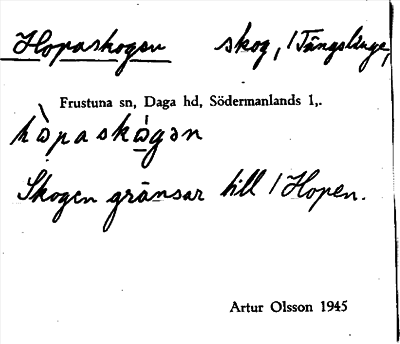 Hopaskogen skog, / Tängslinge,
Frustuna sn, Daga hd, Södermanlands l,.
hɷ̀paskɷ́gən
Skogen gränsar till / Hopen.
Artur Olsson 1945